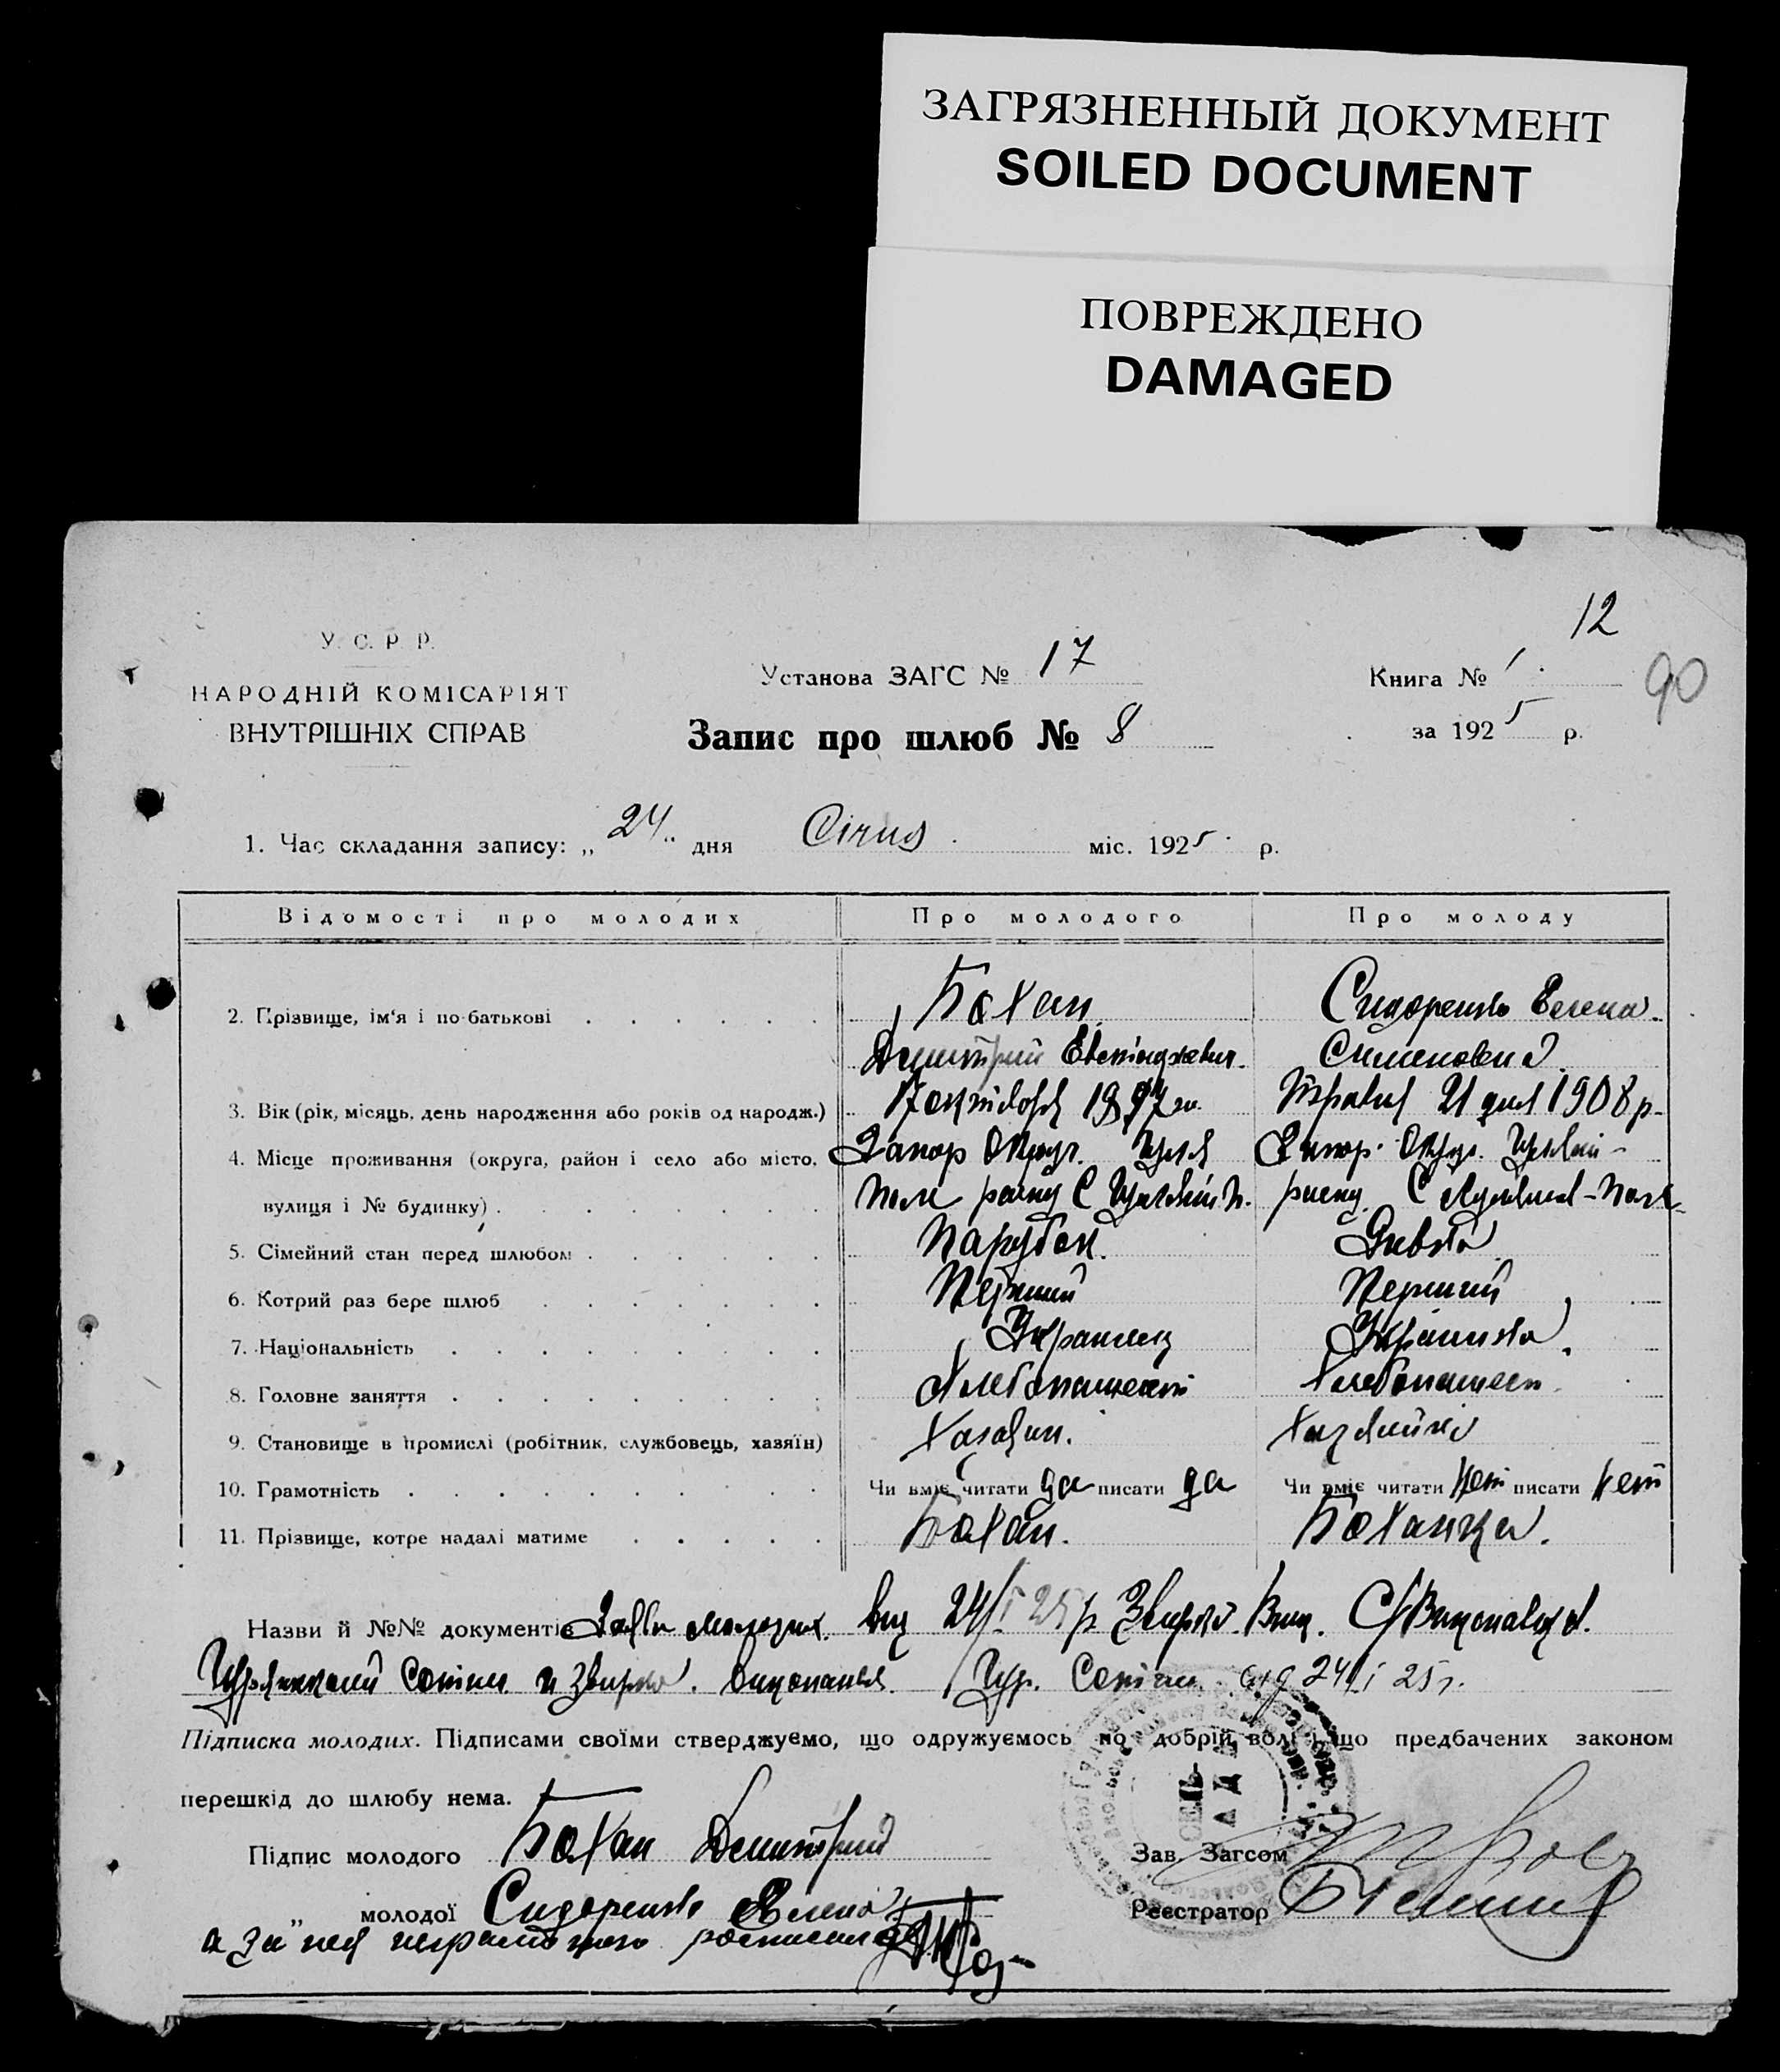 ЗАГРЯЗНЕННЫЙ ДОКУМЕНТ
SOILED DOCUMENT
ПОВРЕЖДЕНО
DAMAGED
12
90
У. С. Р. Р.
НАРОДНІЙ КОМІСАРІЯТ
ВНУТРІШНІХ СПРАВ
Установа ЗАГС № 17
Книга № 1
за 1925 р.
Запис про шлюб № 8
1. Час складання запису: „24" дня Січня міс. 1925 р.
Відомості про молодих Про молодого Про молоду
2. Прізвище, ім'я і по-батькові Бахан Сидоренко Елена
Дмитрий Семеновна
3. Вік (рік, місяць, день народження або років од народж.) 1897 21 дня 1908 р.
4. Місце проживання (округа, район і село або місто, Запор Округ. Запор. Округ.
вулиця і № будинку) Поле району С району С
5. Сімейний стан перед шлюбом Парубок Дівка
6. Котрий раз бере шлюб Перший Перший
7. Національність Украинец Українка
8. Головне заняття Хлебопашест Хлебопашест
9. Становище в промислі (робітник, службовець, хазяїн) Хазяин. Хазяйка
10. Грамотність Чи вміє читати да писати да Чи вміє читати нет писати нет
11. Прізвище, котре надалі матиме Бахан. Баханка.
Назви й №№ документів молодих. 24/I 25 р
24/I 25 г.
Підписка молодих. Підписами своїми стверджуємо, що одружуємось по добрій волі і що предбачених законом
перешкід до шлюбу нема.
Підпис молодого Бахан Дмитрий
Зав. Загсом
„ молодої Сидоренко Елена
Реєстратор
а за неї росписался